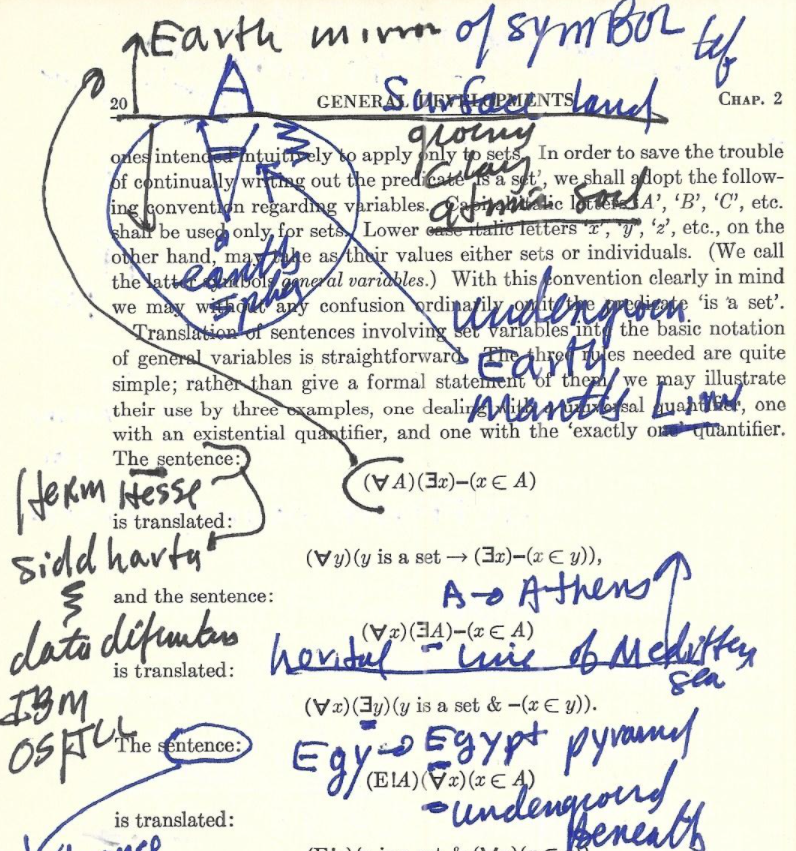 Earth mirror of symbol
20 GENERAL DEVELOPMENTS CHAP. 2
A
Surface land
ones intended intuitively to apply only to sets. In order to save the trouble
of continually writing out the predicate 'is a set', we shall adopt the follow-
ing convention regarding variables. Capital italic letters 'A', 'B', 'C', etc.
shall be used only for sets. Lower case italic letters 'x', 'y', 'z', etc., on the
other hand, may take as their values either sets or individuals. (We call
the latter symbols general variables.) With this convention clearly in mind
we may without any confusion ordinarily omit the predicate 'is a set'.
Translation of sentences involving set variables into the basic notation
of general variables is straightforward. The three rules needed are quite
simple; rather than give a formal statement of them, we may illustrate
their use by three examples, one dealing with a universal quantifier, one
with an existential quantifier, and one with the 'exactly one' quantifier.
The sentence:
(∀A)(∃x)–(x ∈ A)
Hesse
is translated:
siddharta
(∀y)(y is a set → (∃x)–(x ∈ y)),
and the sentence:
A → Athens
(∀x)(∃A)–(x ∈ A)
data
is translated:
line of
sea
IBM
(∀x)(∃y)(y is a set & –(x ∈ y)).
The sentence:
Egy → Egypt
(E!A)(∀x)(x ∈ A)
underground
is translated:
Beneath